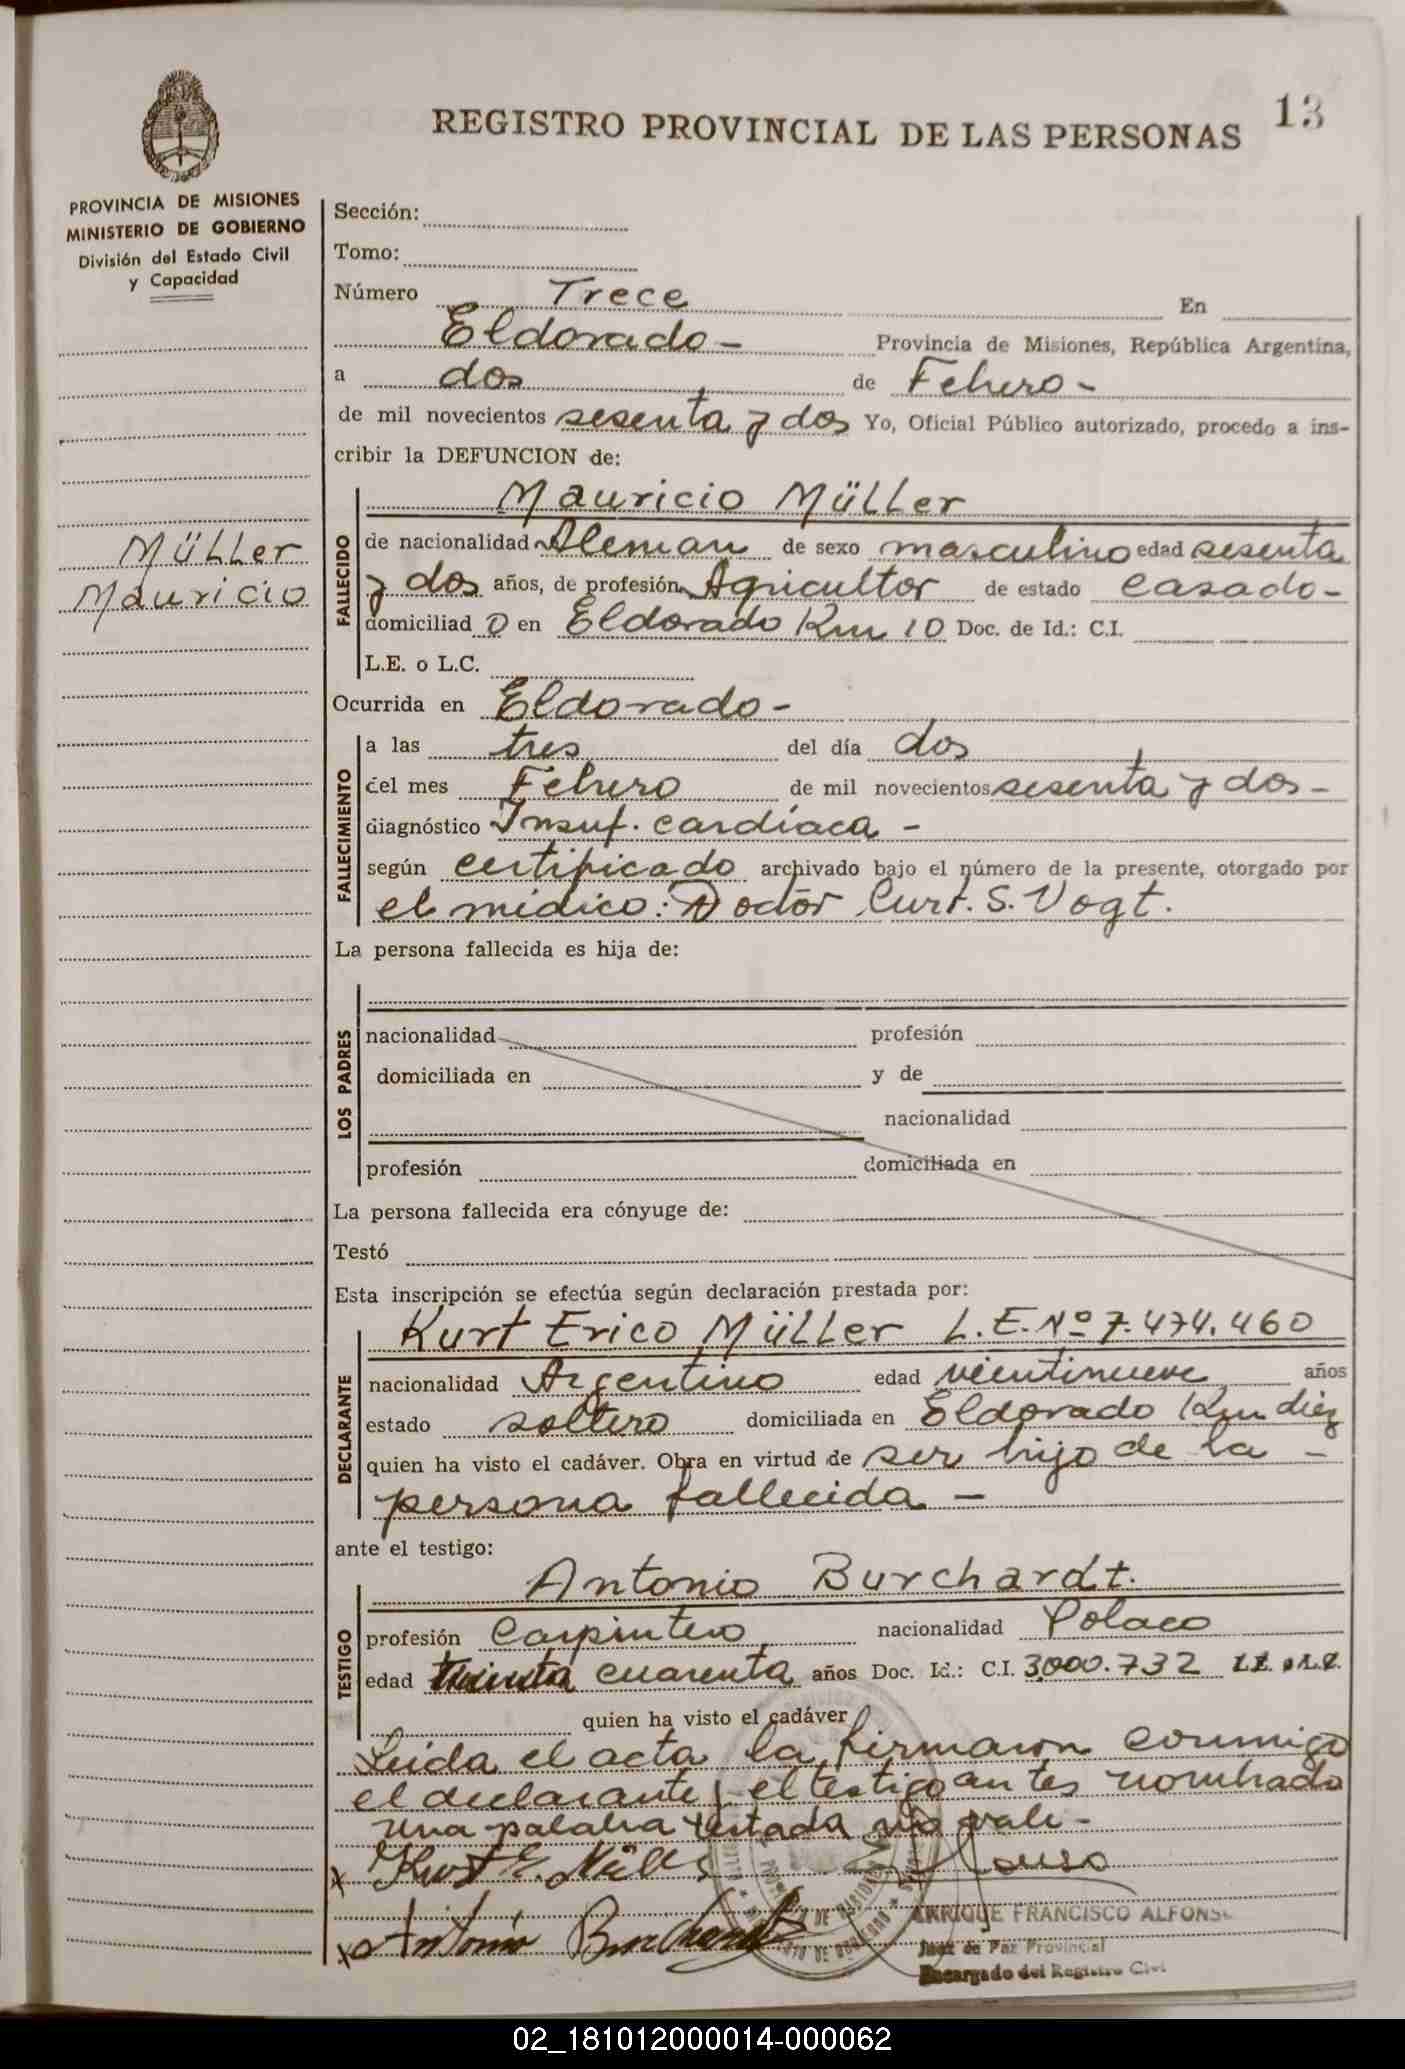 13
REGISTRO PROVINCIAL DE LAS PERSONAS
PROVINCIA DE MISIONES
MINISTERIO DE GOBIERNO
División del Estado Civil
y Capacidad
Müller
Mauricio
Sección:
Tomo:
Número Trece En
Eldorado - Provincia de Misiones, República Argentina,
a dos de Febrero -
de mil novecientos sesenta y dos Yo, Oficial Público autorizado, procedo a ins-
cribir la DEFUNCION de:
FALLECIDO
Mauricio Müller
de nacionalidad Aleman de sexo masculino edad sesenta
y dos años, de profesión Agricultor de estado Casado -
domiciliad o en Eldorado Km 10 Doc. de Id.: C.I.
L.E. o L.C.
Ocurrida en Eldorado -
FALLECIMIENTO
a las tres del día dos
del mes Febrero de mil novecientos sesenta y dos -
diagnóstico Insuf. cardíaca -
según certificado archivado bajo el número de la presente, otorgado por
el médico: Doctor Curt. S. Vogt.
La persona fallecida es hija de:
LOS PADRES
nacionalidad profesión
domiciliada en y de
nacionalidad
profesión domiciliada en
La persona fallecida era cónyuge de:
Testó
Esta inscripción se efectúa según declaración prestada por:
DECLARANTE
Kurt Erico Müller L.E. Nº 7.474.460
nacionalidad Argentino edad vientinueve años
estado soltero domiciliada en Eldorado Km diez
quien ha visto el cadáver. Obra en virtud de ser hijo de la -
persona fallecida -
ante el testigo:
TESTIGO
Antonio Burchardt.
profesión Carpintero nacionalidad Polaco
edad treinta cuarenta años Doc. Id.: C.I. 3.000.732 L.E. o L.C.
quien ha visto el cadáver
Leida el acta la firmaron conmigo
el declarante y el testigo antes nombrado
una palabra testada no vale -
x Kurt E. Müller
x Antonio Burchardt
ENRIQUE FRANCISCO ALFONSO
Juez de Paz Provincial
Encargado del Registro Civil
02_181012000014-000062